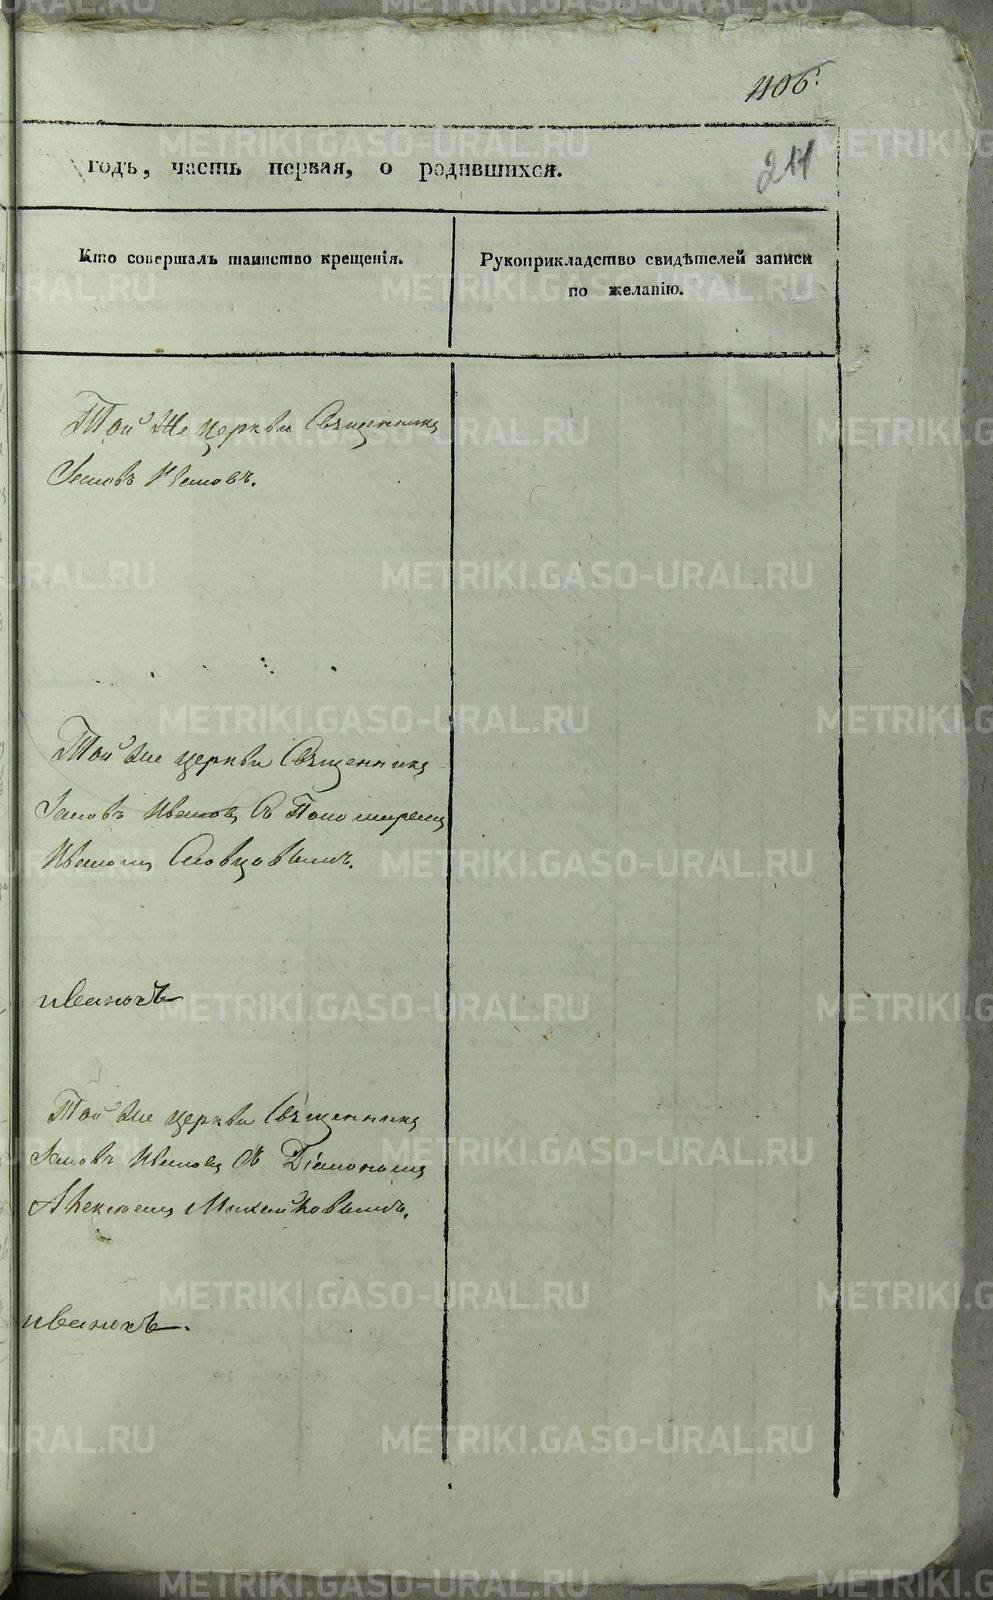 406.
211
годъ, часть первая, о родившихся.
Кто совершалъ таинство крещенія.
Рукоприкладство свидѣтелей записи
по желанію.
Той же церкви Священникъ
Іаковъ
Той же церкви Священникъ
Іаковъ Ивановъ съ Пономаремъ
Иваномъ Словцовымъ.
ивановъ
Той же церкви Священникъ
Іаковъ Ивановъ съ Діакономъ
Алексѣемъ
ивановъ.
METRIKI.GASO-URAL.RU